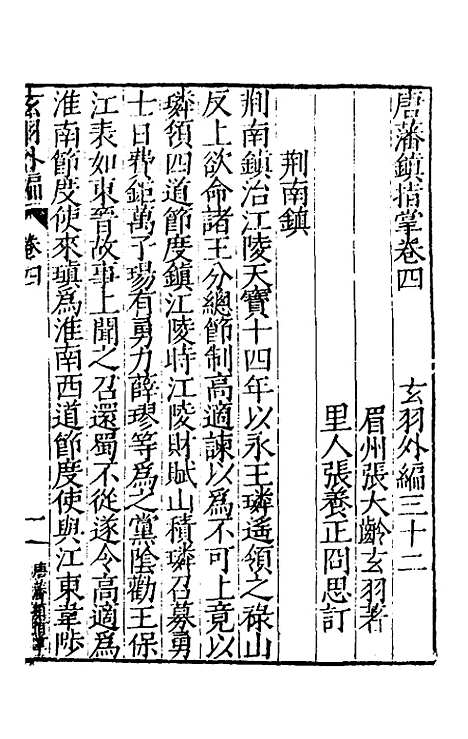 唐藩鎮指掌卷四　玄羽外編三十二
眉州張大齡玄羽著
里人張養正冏思訂
荆南鎮
荆南鎮治江陵天寶十四年以永王璘遙領之祿山
反上欲命諸王分總節制高適諫以爲不可上竟以
璘領四道節度鎮江陵時江陵財賦山積璘召募勇
士日費鉅萬子瑒有勇力薛璆等爲之黨陰勸王保
江表如東晉故事上聞之召還蜀不從遂令高適爲
淮南節度使來瑱爲淮南西道節度使與江東韋陟
玄羽外編　卷四　一　唐藩鎮指掌